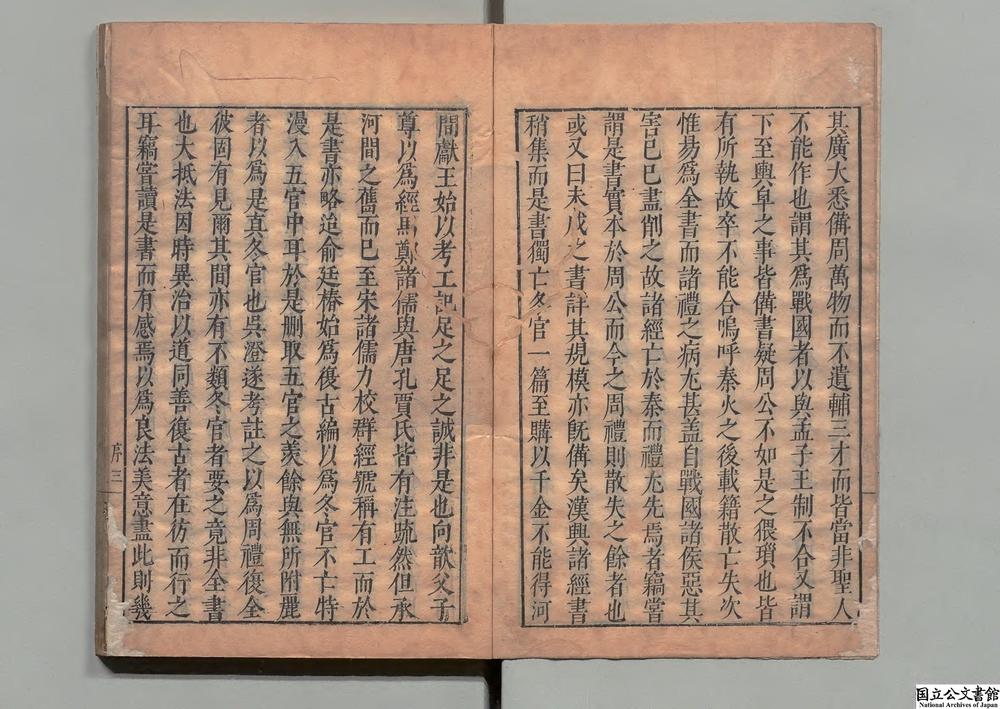 其廣大悉備周萬物而不遺輔三才而皆當非聖人
不能作也謂其爲戰國者以與孟子王制不合又謂
下至輿皁之事皆備書疑周公不如是之猥瑣也皆
有所執故卒不能合嗚呼秦火之後載籍散亡失次
惟易爲全書而諸禮之病尤甚盖自戰國諸侯惡其
害己已盡削之故諸經亡於秦而禮尤先焉者竊嘗
謂是書實本於周公而今之周禮則散失之餘者也
或又曰未成之書詳其規模亦旣備矣漢興諸經書
稍集而是書獨亡冬官一篇至購以千金不能得河
間獻王始以考工記足之足之誠非是也向歆父子
尊以爲經馬鄭諸儒與唐孔賈氏皆有注疏然但承
河間之舊而已至宋諸儒力校群經號稱有工而於
是書亦略迨俞廷椿始爲復古編以爲冬官不亡特
漫入五官中耳於是删取五官之羨餘與無所附麗
者以爲是真冬官也吳澄遂考註之以爲周禮復全
彼固有見爾其間亦有不類冬官者要之竟非全書
也大抵法因時異治以道同善復古者在彷而行之
耳竊嘗讀是書而有感焉以爲良法美意盡此則幾
序三
国立公文書館
National Archives of Japan